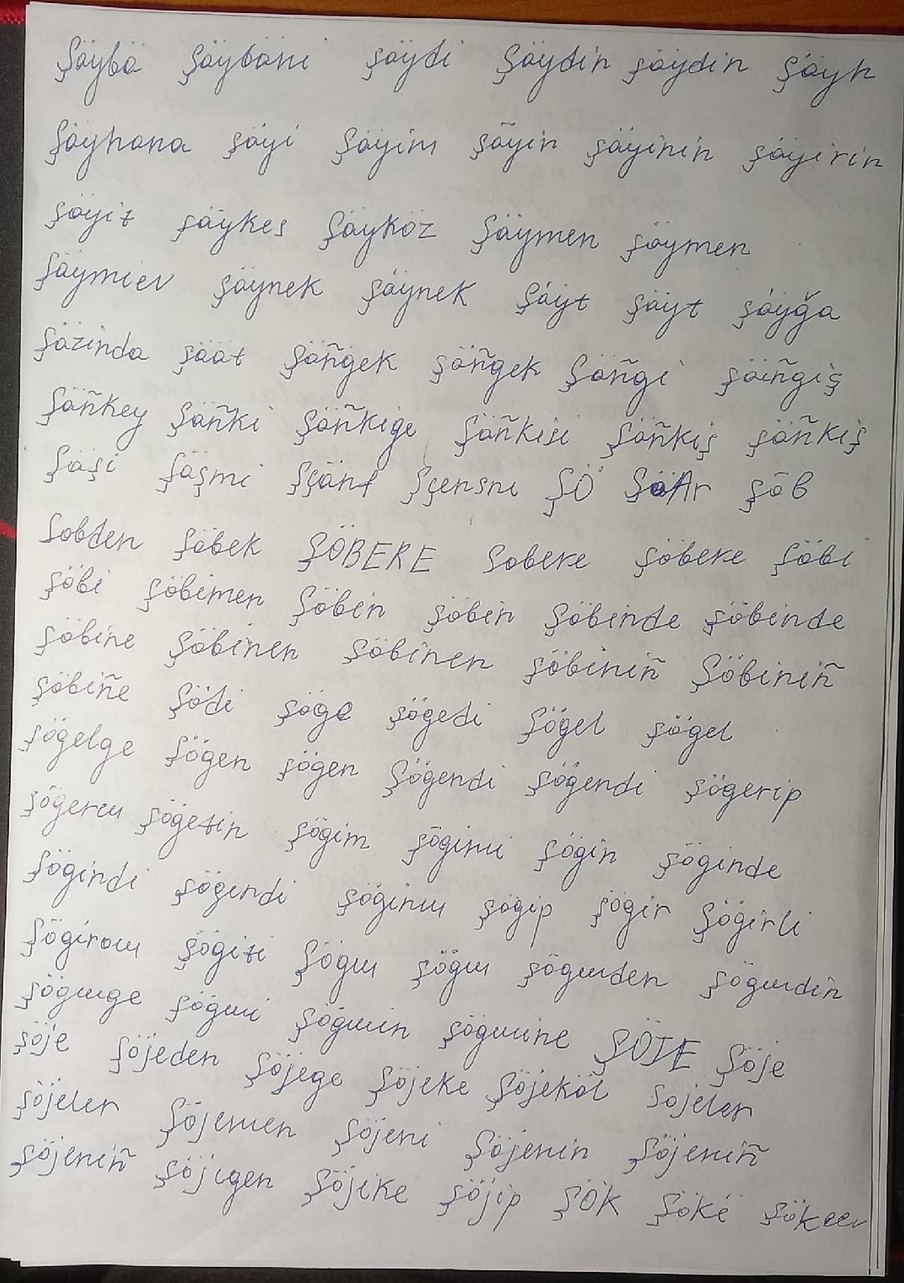 Şäybä Şäybäni şäydi Şäydin şäydin Şäyh
Şäyhana şäyi Şäyim şäyin şäyinin şäyirin
şäyit şäykes Şäyköz Şäymen şäymen
Şäymiev şäynek Şäynek Şäyt şäyt şäyğa
Şäzinda şäät Şäñgek şäñgek Şäñgi şäiñgiş
Şäñkey Şäñki şäñkige şäñkisi Şäñkiş şäñkiş
Şäşi Şäşmi Şşänt Şşensni ŞÖ şöb
Şobden şöbek ŞÖBERE Şobere şöbere Şöbi
şöbi şöbimen Şöbin şöbin Şöbinde şöbinde
şöbine Şöbinen şöbinen şöbiniñ Şöbiniñ
şöbiñe Şödi şöge şögedi Şögel şögel
şögelge Şögen şögen Şögendi şögendi şögerip
şögeru şögetin şögim şöğimi şögin şöginde
Şögindi şögindi şöginiu şögip şögir Şögirli
Şögirou şögiti Şögiu şögiu şögiuden şögiudin
şögiuge şögiui şögiuin şögiuine ŞÖJE Şöje
şöje şöjeden şöjege şöjeke Şöjeköl Şojeler
şöjeler şöjemen şöjeni şöjenin Şöjeniñ
şöjeniñ şöjigen Şöjike şöjip ŞÖK Şöke şökeev